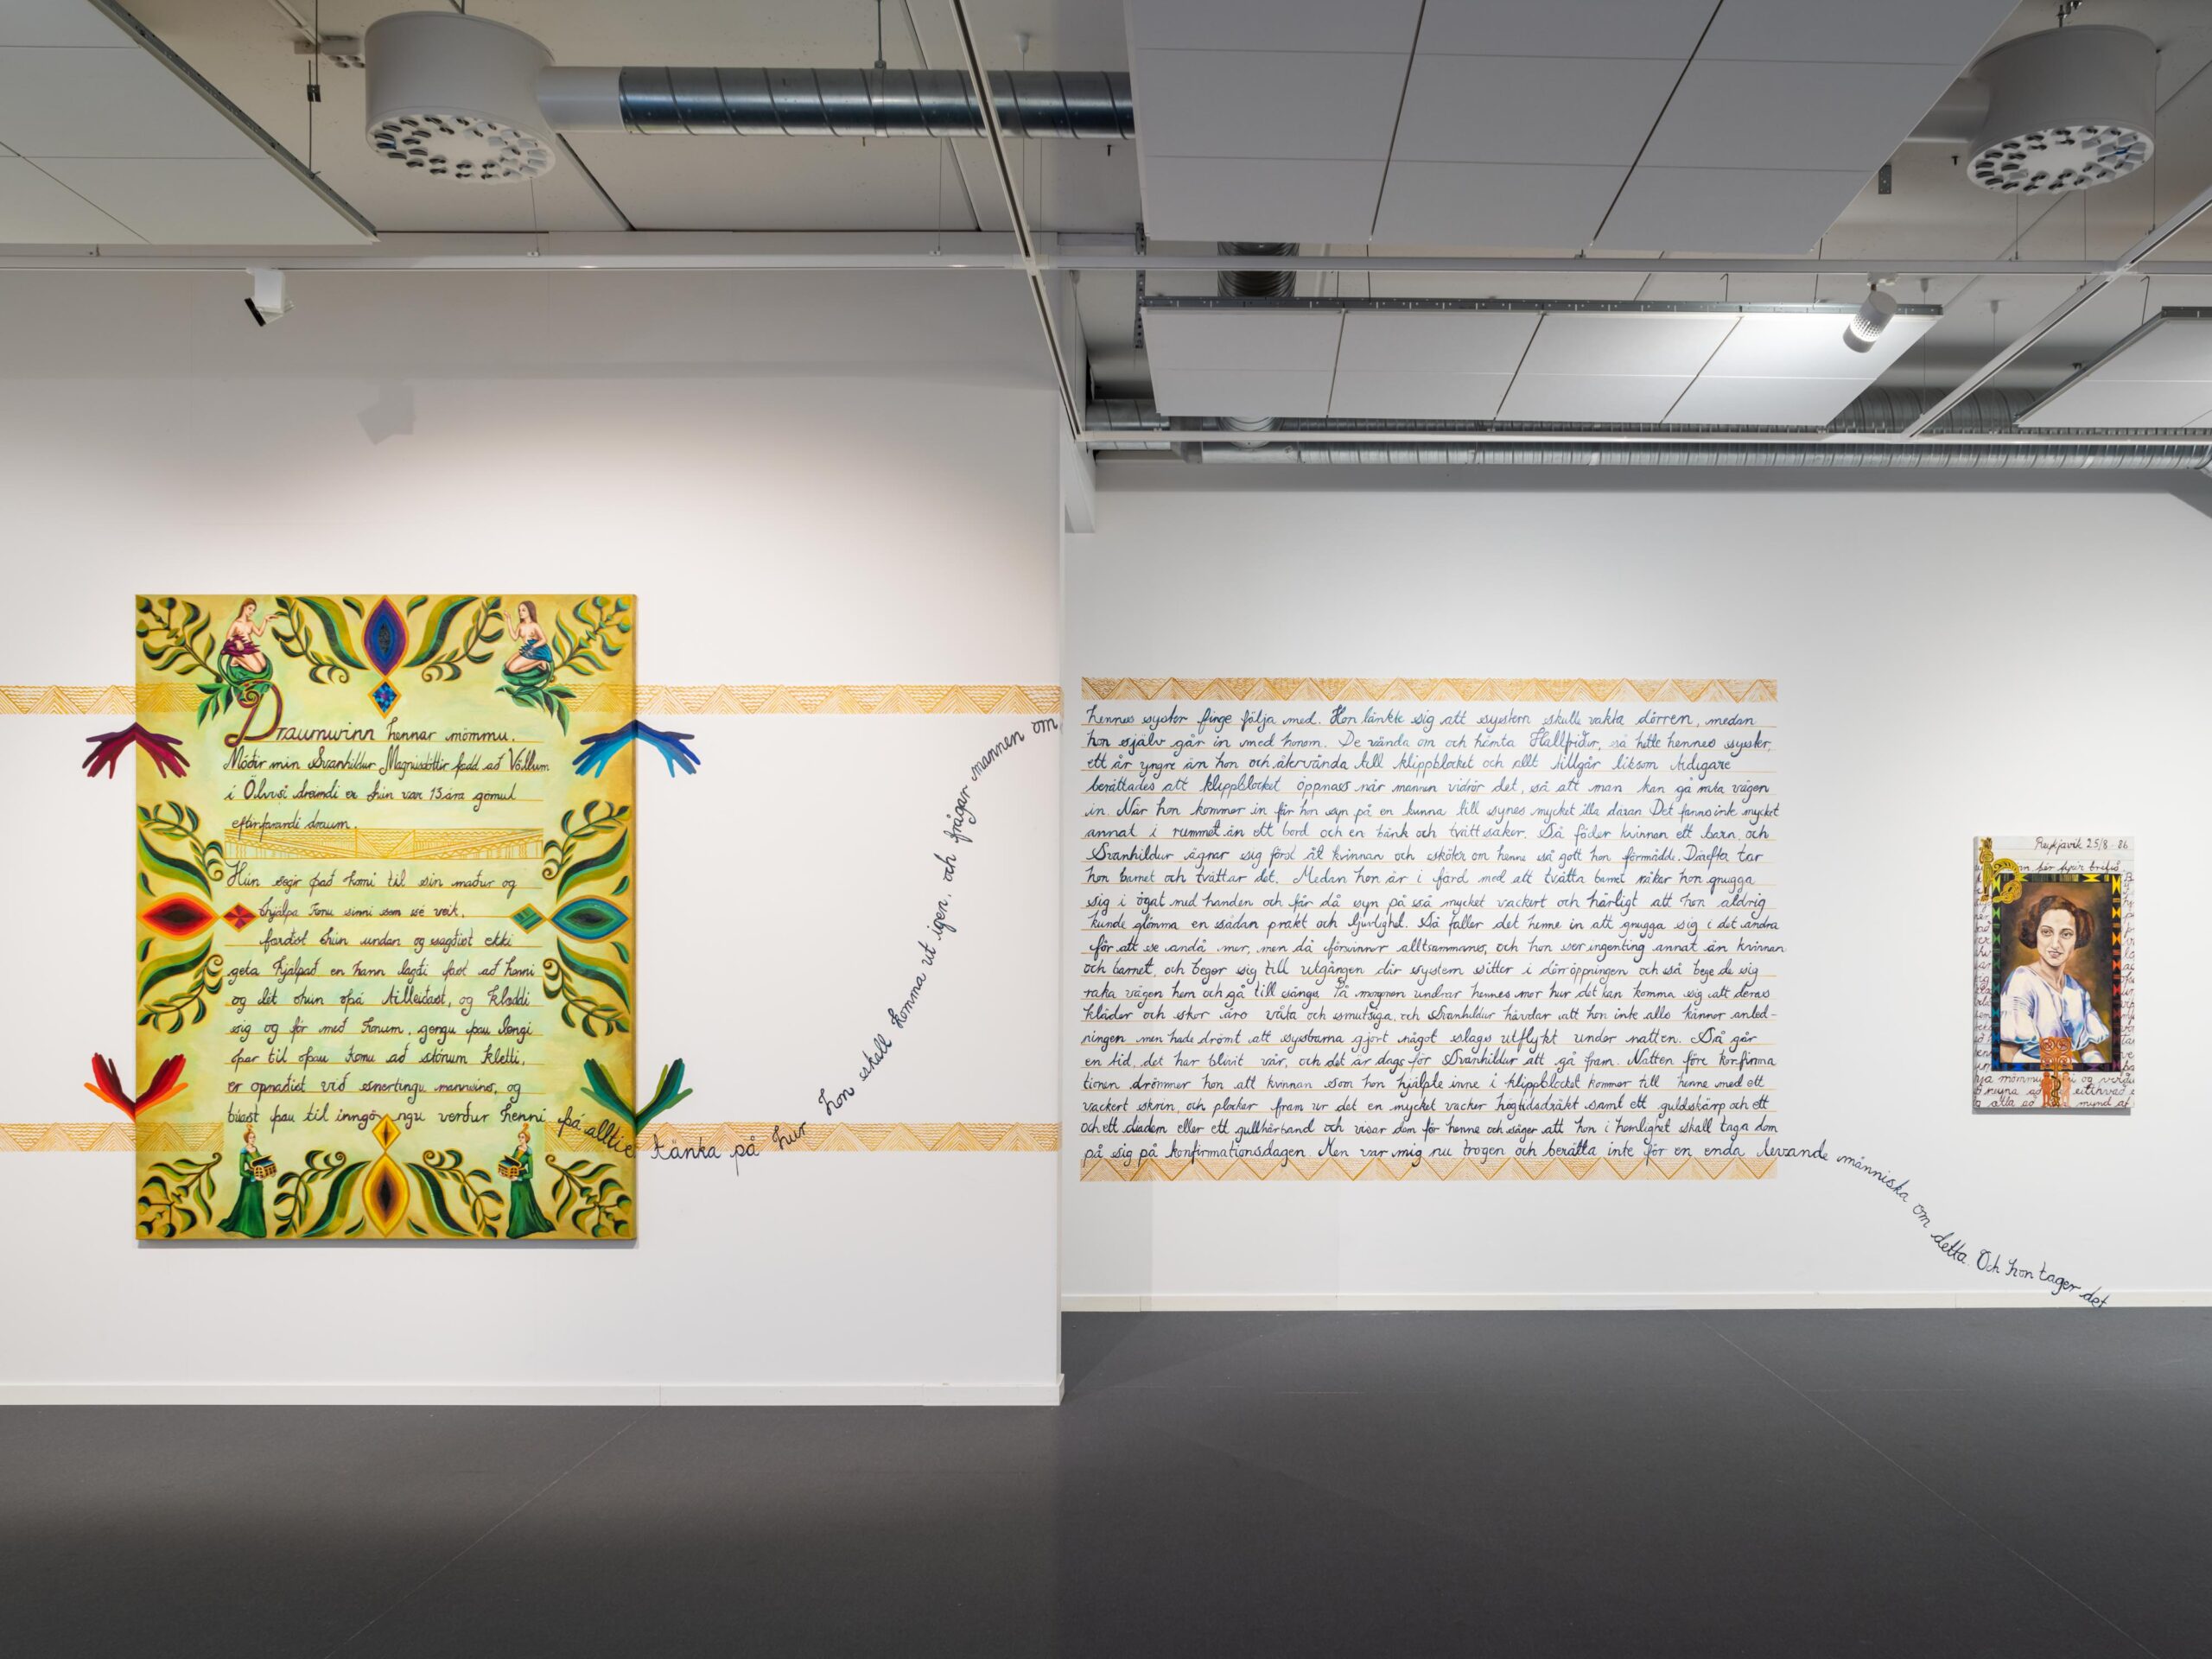 Draumurinn hennar mömmu.
Móðir min Svanhildur Magnúsdóttir fædd að Völlum
i Ölvusi dreimdi er hún var 15 ára gömul
eftirfarandi draum.
Hún segir það komi til sin maður og
hjálpa konu sinni sem sé veik,
færðist hún undan og sagðist ekki
geta hjálpað en hann lagði fast að henni
og lét hún þá tilleiðast, og klæddi
sig og fór með honum, gengu þau lengi
þar til þau komu að stórum kletti,
er opnaðist við snertingu mannsins, og
búast þau til inngöngu verður henni þá alltie
tänka på hur
hon skall komma ut igen, och frågar mannen om
hennes syster finge följa med. Hon tänkte sig att systern skulle vakta dörren, medan
hon själv går in med honom. De vända om och hämta Hallfriður, så hette hennes syster,
ett år yngre än hon och återvända till klippblocket och allt tillgår liksom tidigare
berättades att klippblocket öppnas när mannen vidrör det, så att man kan gå raka vägen
in. När hon kommer in får hon syn på en kunna till synes mycket illa daran Det fanns inte mycket
annat i rummet än ett bord och en bänk och tvättsaker. Så föder kvinnan ett barn, och
Svanhildur ägnar sig först åt kvinnan och sköter om henne så gott hon förmådde. Därefter tar
hon barnet och tvättar det. Medan hon är i färd med att tvätta barnet råkar hon gnugga
sig i ögat med handen och får då syn på så mycket vackert och härligt att hon aldrig
kunde glömma en sådan prakt och ljuvlighet. Så faller det henne in att gnugga sig i det andra
för att se ändå mer, men då försvinner alltsammans, och hon ser ingenting annat än kvinnan
och barnet, och beger sig till utgången där systern sitter i dörröppningen och så bege de sig
raka vägen hem och gå till sängs. På morgonen undrar hennes mor hur det kan komma sig att deras
kläder och skor äro våta och smutsiga, och Svanhildur hävdar att hon inte alls känner anled-
ningen men hade drömt att systrarna gjort något slags utflykt under natten. Så går
en tid, det har blivit vår, och det är dags för Svanhildur att gå fram. Natten före konfirma
tionen drömmer hon att kvinnan som hon hjälpte inne i klippblocket kommer till henne med ett
vackert skrin, och plockar fram ur det en mycket vacker högtidsdräkt samt ett guldskärp och ett
och ett diadem eller ett gullhårband och visar dem för henne och säger att hon i hemlighet skall taga dem
på sig på konfirmationsdagen. Men var mig nu trogen och berätta inte för en enda levande människa om detta. Och hon tager det
Reykjavik 25/8 - 86
þér fyrir bréfið